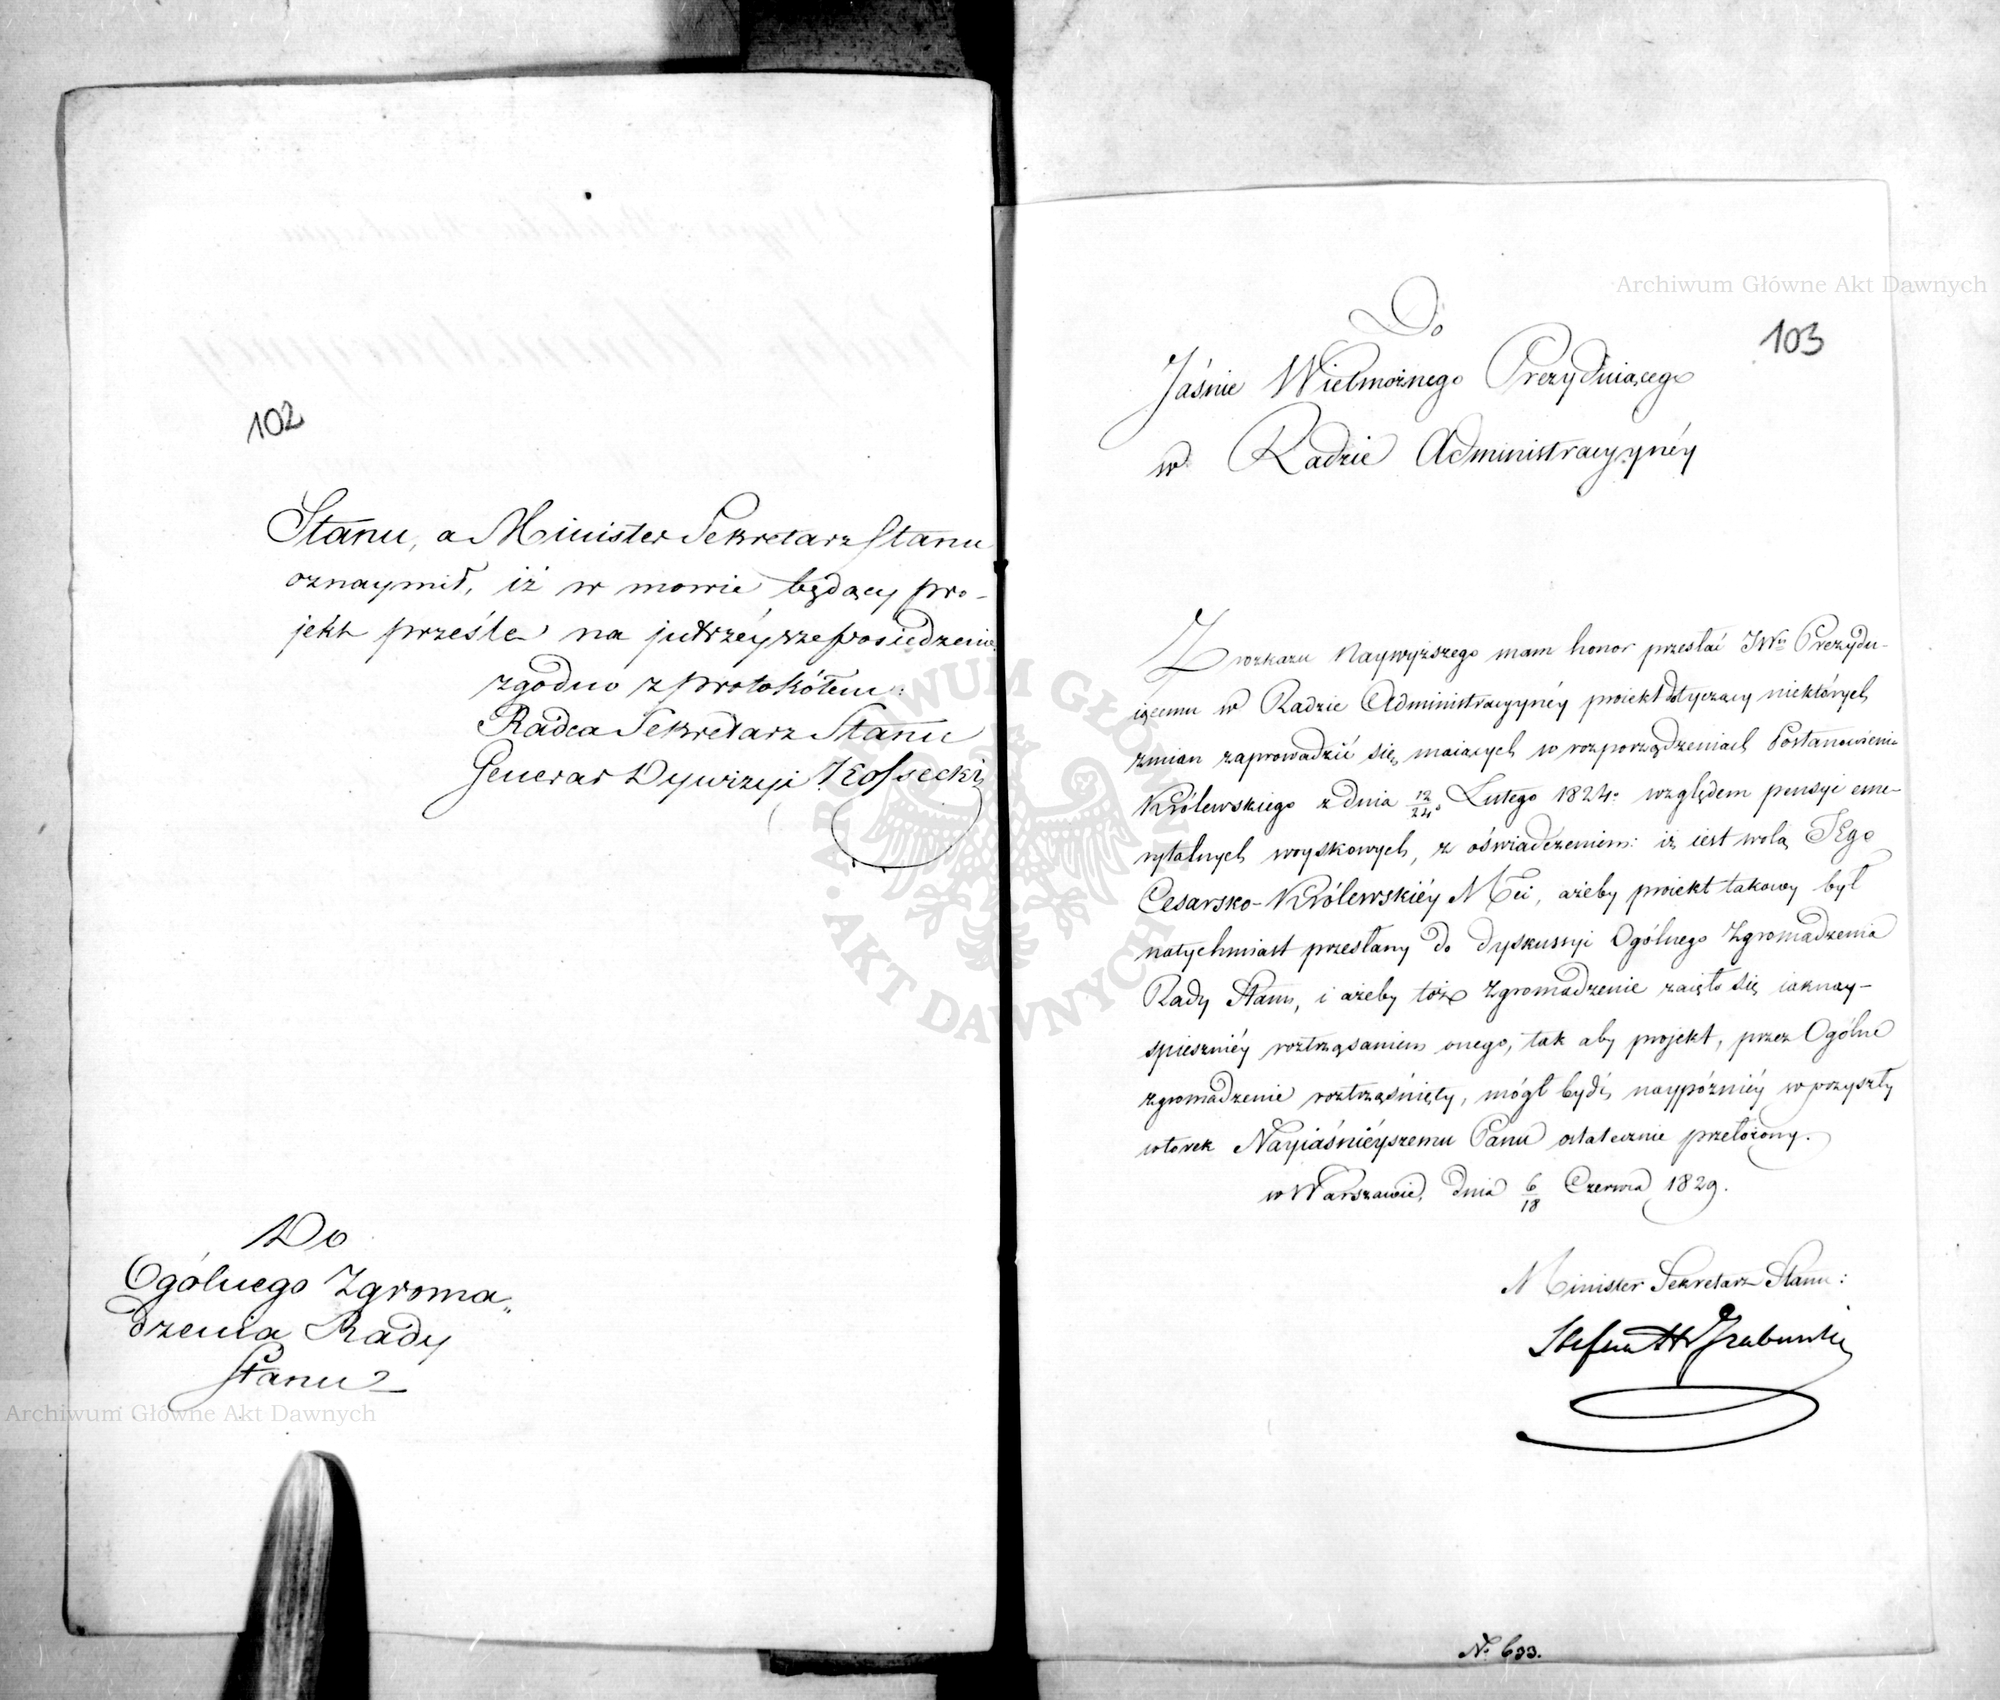 102
Stanu, a Minister Sekretarz Stanu
oznaymił, iż w mowie będący pro-
jekt prześle na jutrzéysze posiedzenie.
zgodno z protokółem:
Radca Sekretarz Stanu
Generał Dywizyi Kossecki
Do
Ogólnego Zgroma„
dzenia Rady
Stanu
Archiwum Główne Akt Dawnych
Archiwum Główne Akt Dawnych
103
Do
Jáśnie Wielmożnego Prezyduiącego
w Radzie Administracyynéy
Z rozkazu Naywyższego mam honor przesłać JWu Prezydu-
iącemu w Radzie Administracyynéy proiekt dotyczący niektórych
zmian zaprowadzić się maiących w rozporządzeniach Postanowienia
Królewskiego z dnia 12/24. Lutego 1824. względem pensyi eme-
rytalnych woyskowych, z oświadczeniem: iż iest wolą JEgo
Cesarsko-Królewskiéy Mći, ażeby proiekt takowy był
natychmiast przesłany do dyskussyi Ogólnego Zgromadzenia
Rady Stanu, i ażeby toż Zgromadzenie zaięło się iaknay-
spieszniéy roztrząsaniem onego, tak aby projekt, przez Ogólne
zgromadzenie roztrząśnięty, mógł bydź naypóźniéy w przyszły
wtorek Nayiaśniéyszemu Panu ostatecznie przełożony.
w Warszawie, dnia 6/18 Czerwca 1829.
Minister Sekretarz Stanu:
Stefan Hr Grabowski
N. 633.
ARCHIWUM GŁÓWNE AKT DAWNYCH